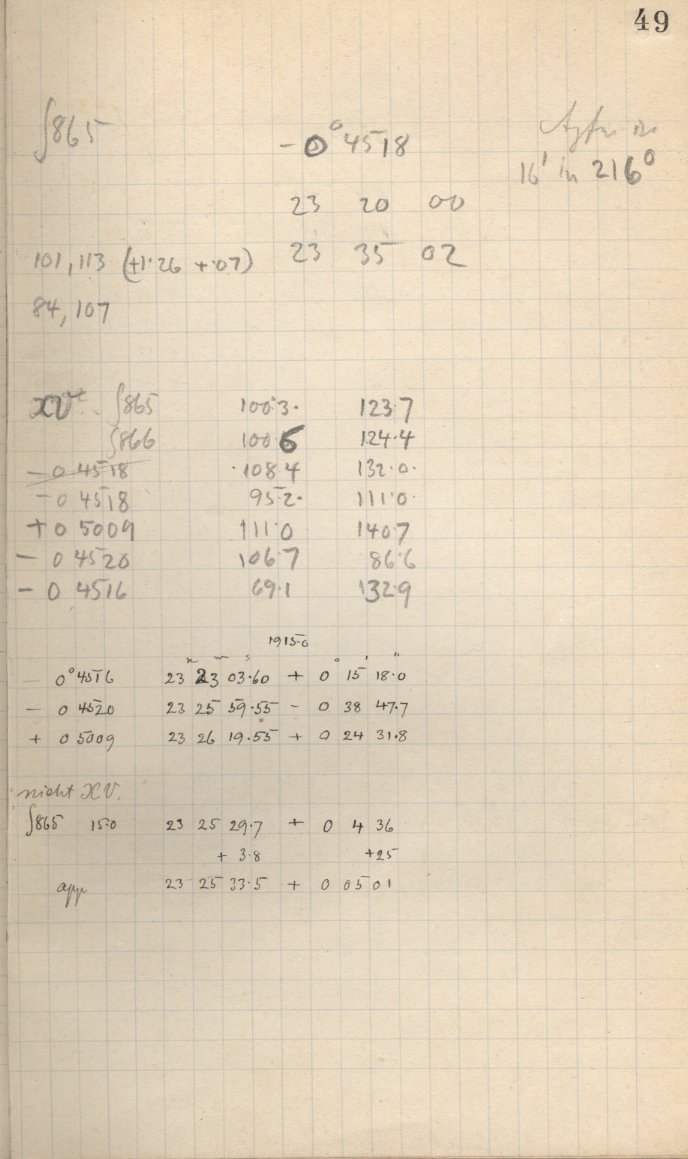 49
∫865 -0° 4518
16' in 216°
23 20 00
101,113 (+1·26 +·07) 23 35 02
84,107
XV. ∫865 100·3· 123·7
∫866 100 6 124·4
-0 4518 ·108 4 132·0·
-0 4518 95·2· 111·0
+0 5009 111·0 140·7
- 0 4520 106·7 86·6
- 0 4516 69·1 132·9
1915·0
h m s ° ' "
- 0° 4516 23 23 03·60 + 0 15 18·0
- 0 4520 23 25 59·55 - 0 38 47·7
+ 0 5009 23 26 19·55 + 0 24 31·8
nicht XV.
∫865 15·0 23 25 29·7 + 0 4 36
+ 3·8 +25
app 23 25 33·5 + 0 05 01